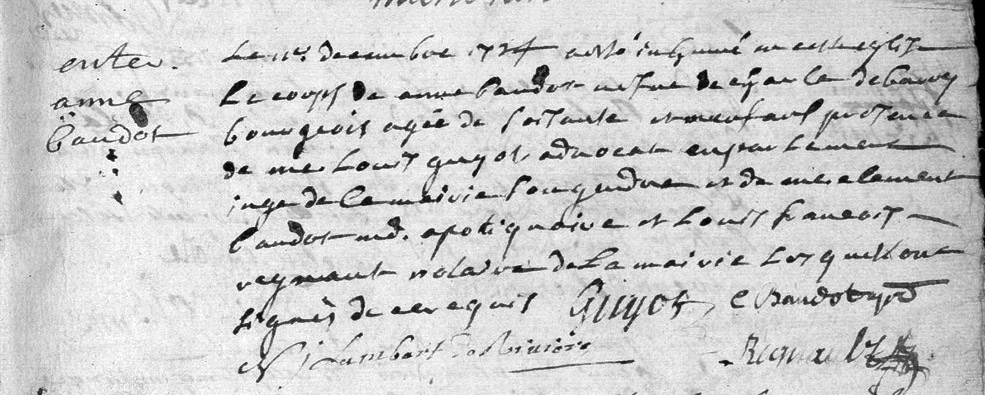 enter.
anne
baudot
Le 11e decembre 1724 a esté inhumé en cette eglise
Le corps de anne baudot vefue de charle debauvy
bourgeois agée de soisante et neuf ans presence
de me Louis guyot advocat en parlement
iuge de la mairie son gendre et de me clement
baudot md. apotiquaire et Louis francois
regnault notaire de la mairie Lesquels ont
signés de ce requis Guyot, C Baudot
N Lambert Des Riviere Regnault